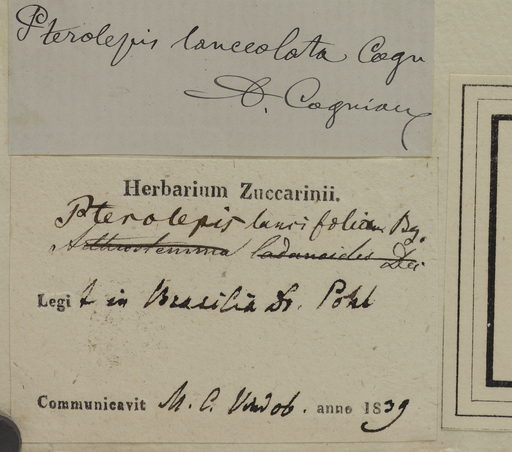 Pterolepis lanceolata Cogn
A. Cogniaux
Herbarium Zuccarinii.
Pterolepis lancifolia Bg.
Arthrostemma ladanoides DC
Legit in Brasilia Dr. Pohl
Communicavit M. C. Vindob. anno 1839